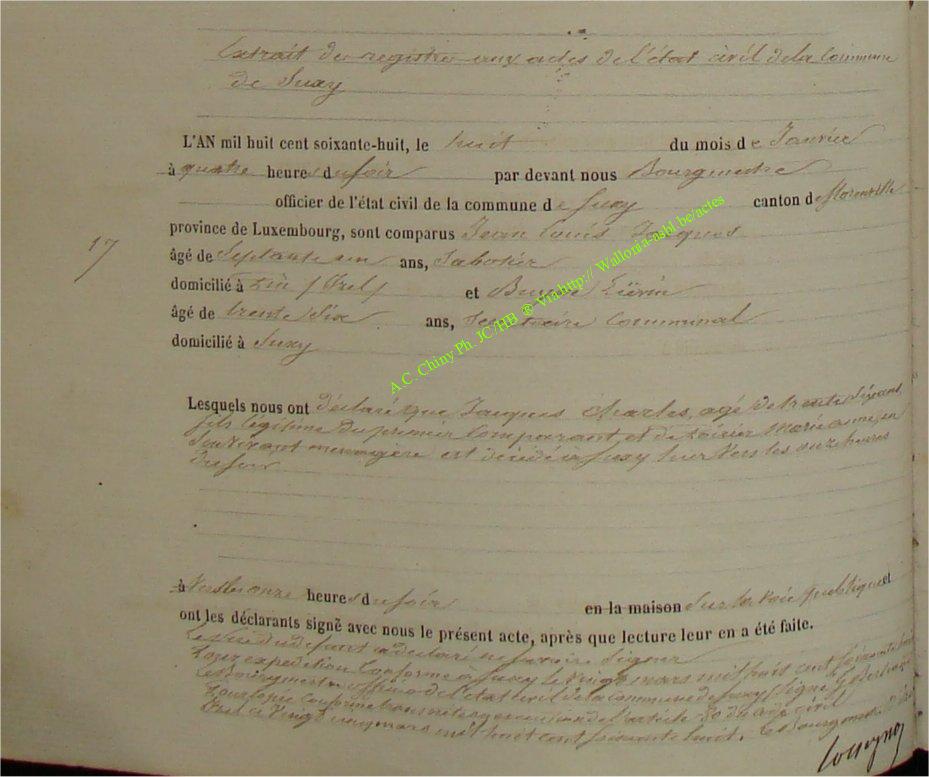 Extrait du registre aux actes de l'état civil de la Commune
de Suxy
L'AN mil huit cent soixante-huit, le huit du mois de Janvier
à quatre heures du soir par devant nous Bourgmestre
officier de l'état civil de la commune de Suxy canton de florenville
province de Luxembourg, sont comparus Jean Louis Jacques
17
âgé de Septante un ans, Sabotier
domicilié à et
âgé de trente Six ans, Secrétaire Communal
domicilié à Suxy
A.C. Chiny Ph. JC/HB @ Via http:// Wallonia-asbl be/actes
Lesquels nous ont déclaré que Jacques Charles, agé de trente ans,
fils légitime du premier Comparant, et de Marie anne, en
Son vivant menagère est décédé à Suxy hier vers les onze heures
du soir
à Vers les onze heures du soir en la maison Sur la voie publique et
ont les déclarants signé avec nous le présent acte, après que lecture leur en a été faite.
Le père du défunt a déclaré ne savoir Signer
Pour expedition Conforme a Suxy le vingt mars mil huit cent soixante huit
Le Bourgmestre officier de l'état civil de la commune de Suxy (signé)
Pour copie conforme transcrite en execution de l'article 80 du code civil
vingt cinq mars mil huit cent soixante huit. Le Bourgmestre